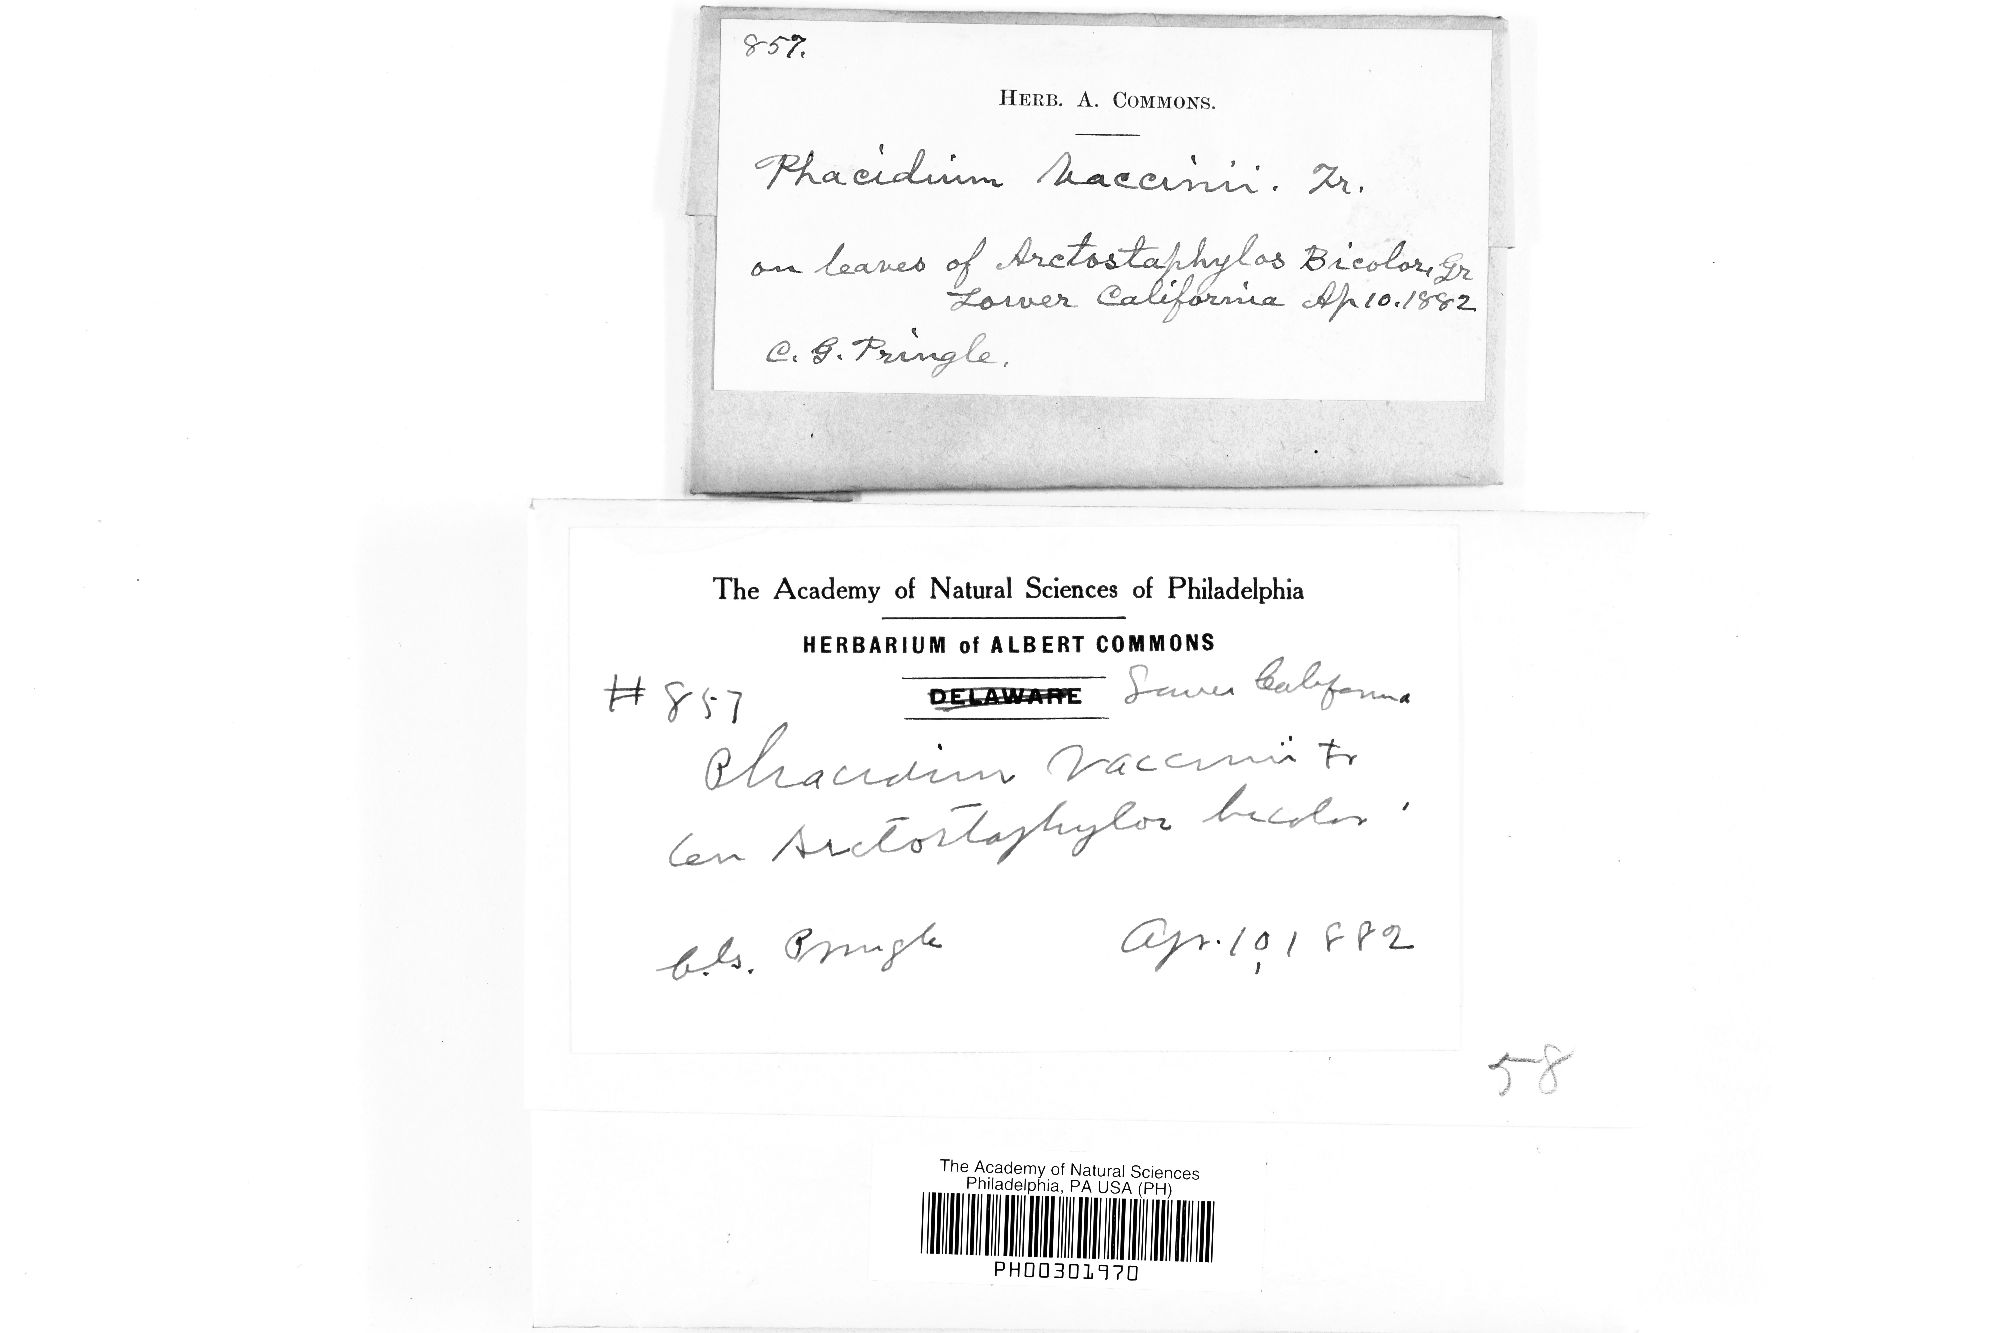 857.
HERB. A. COMMONS.
Phacidium Vaccinii. Fr.
on leaves of Arctostaphylos Bicolor, Gr
Lower California Ap 10. 1882
C. G. Pringle.
The Academy of Natural Sciences of Philadelphia
HERBARIUM of ALBERT COMMONS
# 857 DELAWARE Lower California
Phacidium Vaccinii Fr
on Arctostaphylos bicolor
C.G. Pringle Apr. 10, 1882
58
The Academy of Natural Sciences
Philadelphia, PA USA (PH)
PH00301970